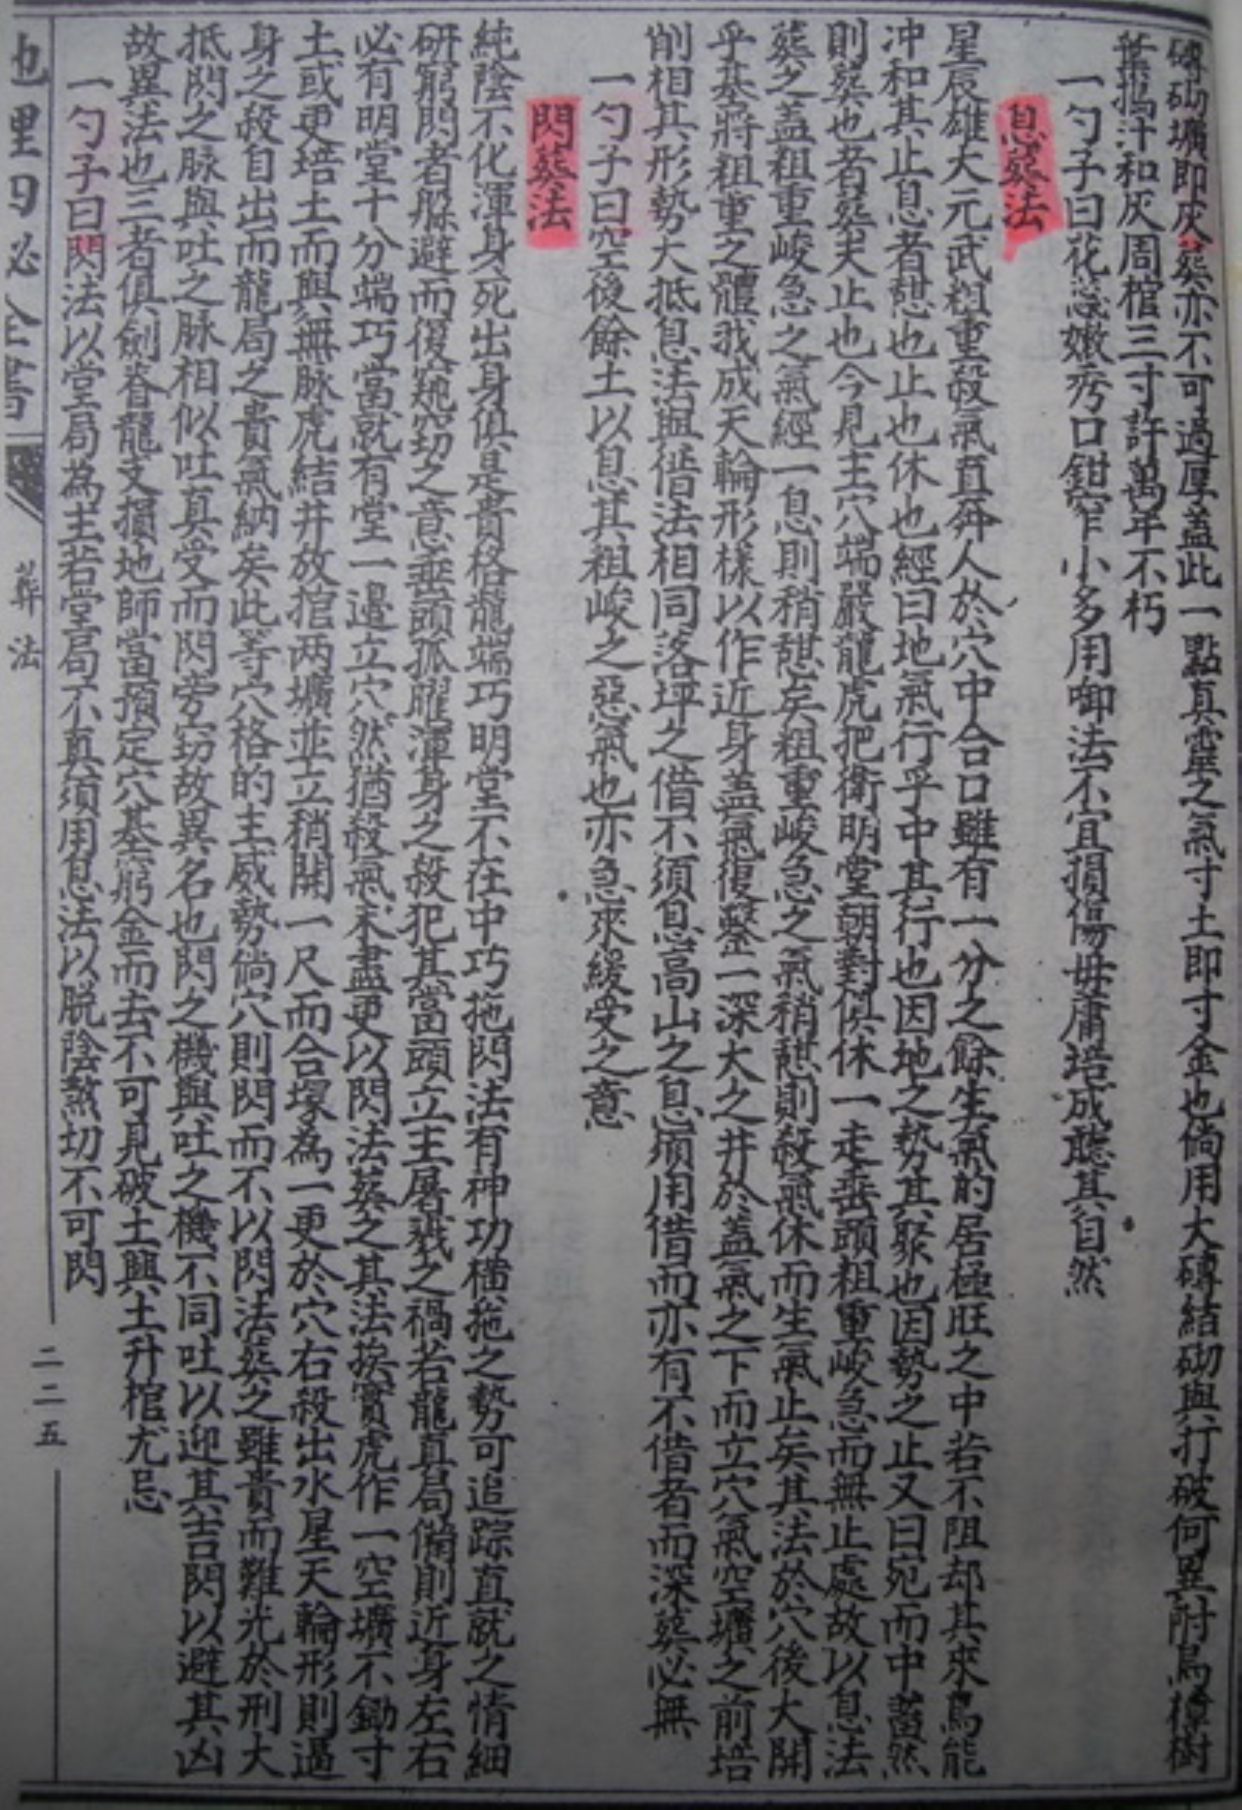 磚砌壙即灰葬亦不可過厚蓋此一點真靈之氣寸土即寸金也倘用大磚結砌與打破何異附烏樟樹
葉搗汁和灰周棺三寸許萬年不朽
一勺子曰花蕊嫩秀口鉗窄小多用啣法不宜損傷毋庸培成聽其自然
息葬法
星辰雄大元武粗重殺氣直奔人於穴中合口雖有一分之餘生氣的居極旺之中若不阻却其來焉能
冲和其止息者憇也止也休也經曰地氣行乎中其行也因地之勢其聚也因勢之止又曰宛而中蓄然
則葬也者葬夫止也今見主穴端嚴龍虎把衛明堂朝對俱休一走垂頭粗重峻急而無止處故以息法
葬之蓋粗重峻急之氣經一息則稍憇矣粗重峻急之氣稍憇則殺氣休而生氣止矣其法於穴後大開
乎基將粗重之體裁成天輪形樣以作近身蓋氣復鑿一深大之井於蓋氣之下而立穴氣空壙之前培
削相其形勢大抵息法與借法相同落坪之借不須息高山之息須用借而亦有不借者而深葬必無
一勺子曰空後餘土以息其粗峻之惡氣也亦急來緩受之意
閃葬法
純陰不化渾身死出身俱是貴格龍端巧明堂不在中巧拖閃法有神功橫拖之勢可追踪直就之情細
研窮閃者躲避而復窺窃之意垂頭孤曜渾身之殺犯其當頭立主屠戮之禍若龍真局備則近身左右
必有明堂十分端巧當就有堂一邊立穴然猶殺氣未盡更以閃法葬之其法挨實虎作一空壙不鋤寸
土或更培土而與無脉虎結井放棺两壙並立稍開一尺而合塚為一更於穴右殺出水星天輪形則逼
身之殺自出而龍局之貴氣納矣此等穴格的主威勢倘穴則閃而不以閃法葬之雖貴而難免於刑大
抵閃之脉與吐之脉相似吐真受而閃旁窃故異名也閃之機與吐之機不同吐以迎其吉閃以避其凶
故異法也三者俱劍脊龍支損地師當預定穴基窮金而去不可見破土興土升棺尤忌
一勺子曰閃法以堂局為主若堂局不真須用息法以脱陰煞切不可閃
地理四必全書
葬法
二二五